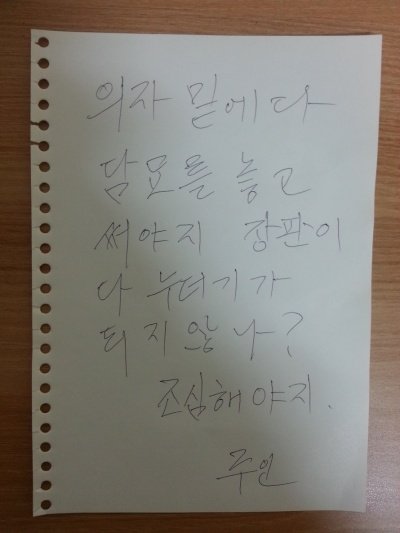 의자 밑에다
담요를 놓고
써야지 장판이
다 누더기가
되지 않나?
조심해야지.
주인